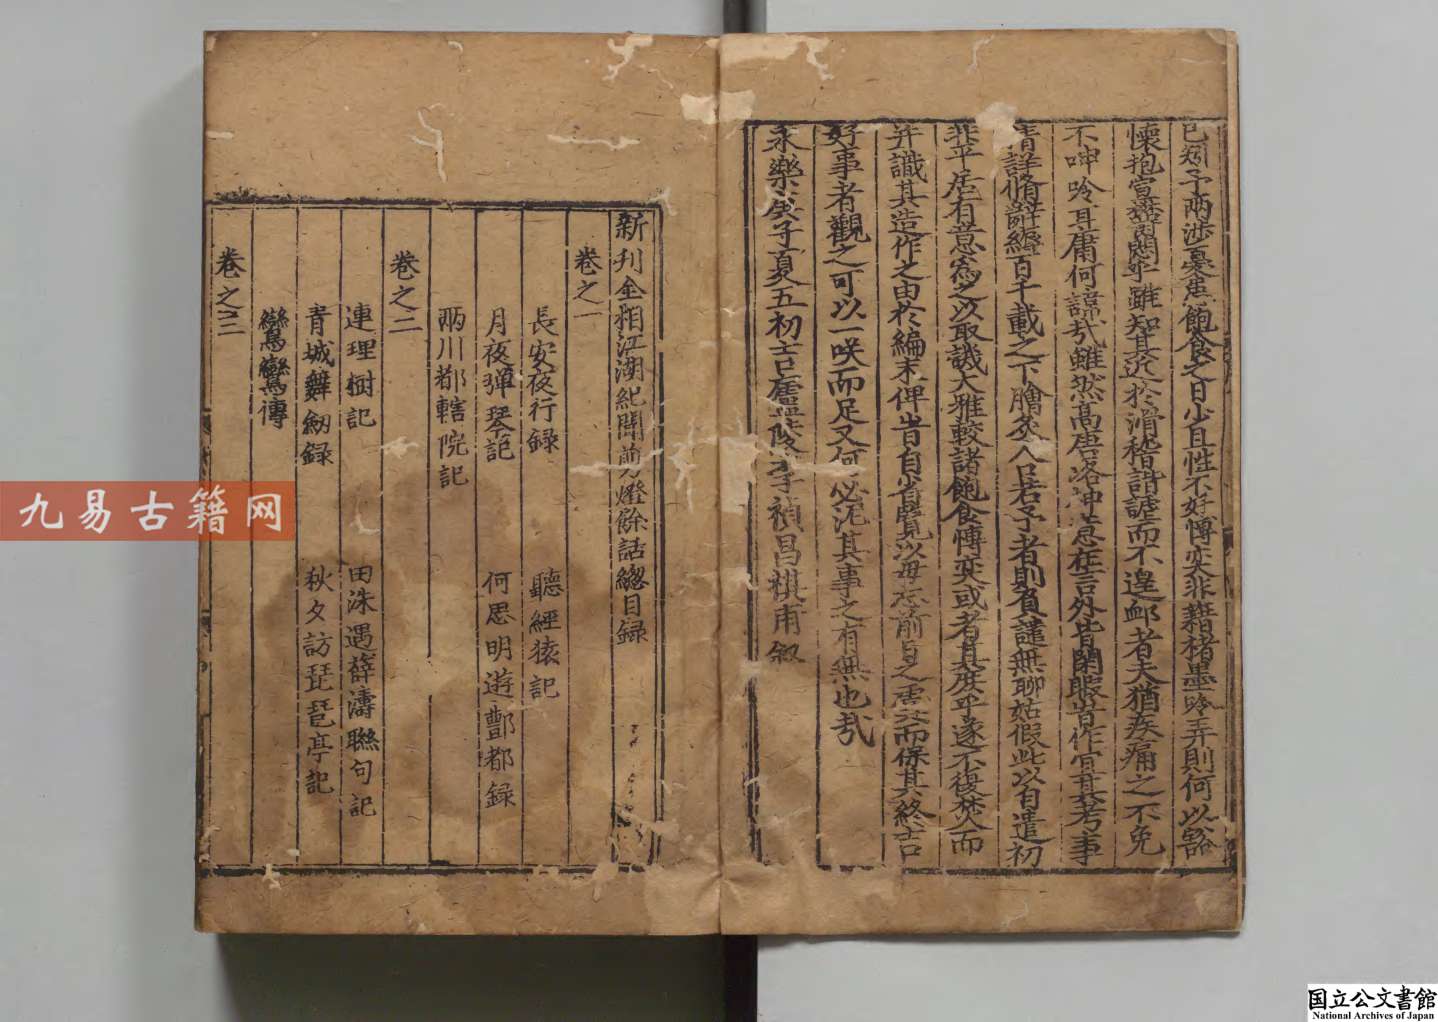 已矧予兩涉憂患飽食之日少且性不好博奕非藉楮墨吟弄則何以豁
懷抱宣鬱悶乎雖知其近於滑稽諧謔而不遑卹者夫猶疾痛之不免
不呻吟耳庸何諱哉雖然高唐洛神意在言外皆閑暇時作宜其考事
精詳脩辭縟麗百千載之下膾炙人口若予者則負譴無聊姑假此以自遣初
非平居有意爲之以取譏大雅較諸飽食博奕或者其庶乎遂不復焚而
并識其造作之由於編末俾時自省覽以毋忘前日之虞而保其終吉
好事者觀之可以一咲而足又何必泥其事之有無也哉
永樂庚子夏五初吉廬陵李禎昌祺甫叙
新刊全相江湖紀聞剪燈餘話總目録
卷之一
長安夜行録 聽經猿記
月夜彈琴記 何思明遊酆都録
兩川都轄院記
卷之二
連理樹記 田洙遇薛濤聯句記
青城舞劒録 秋夕訪琵琶亭記
鸞鸞傳
卷之三
九易古籍网
国立公文書館
National Archives of Japan